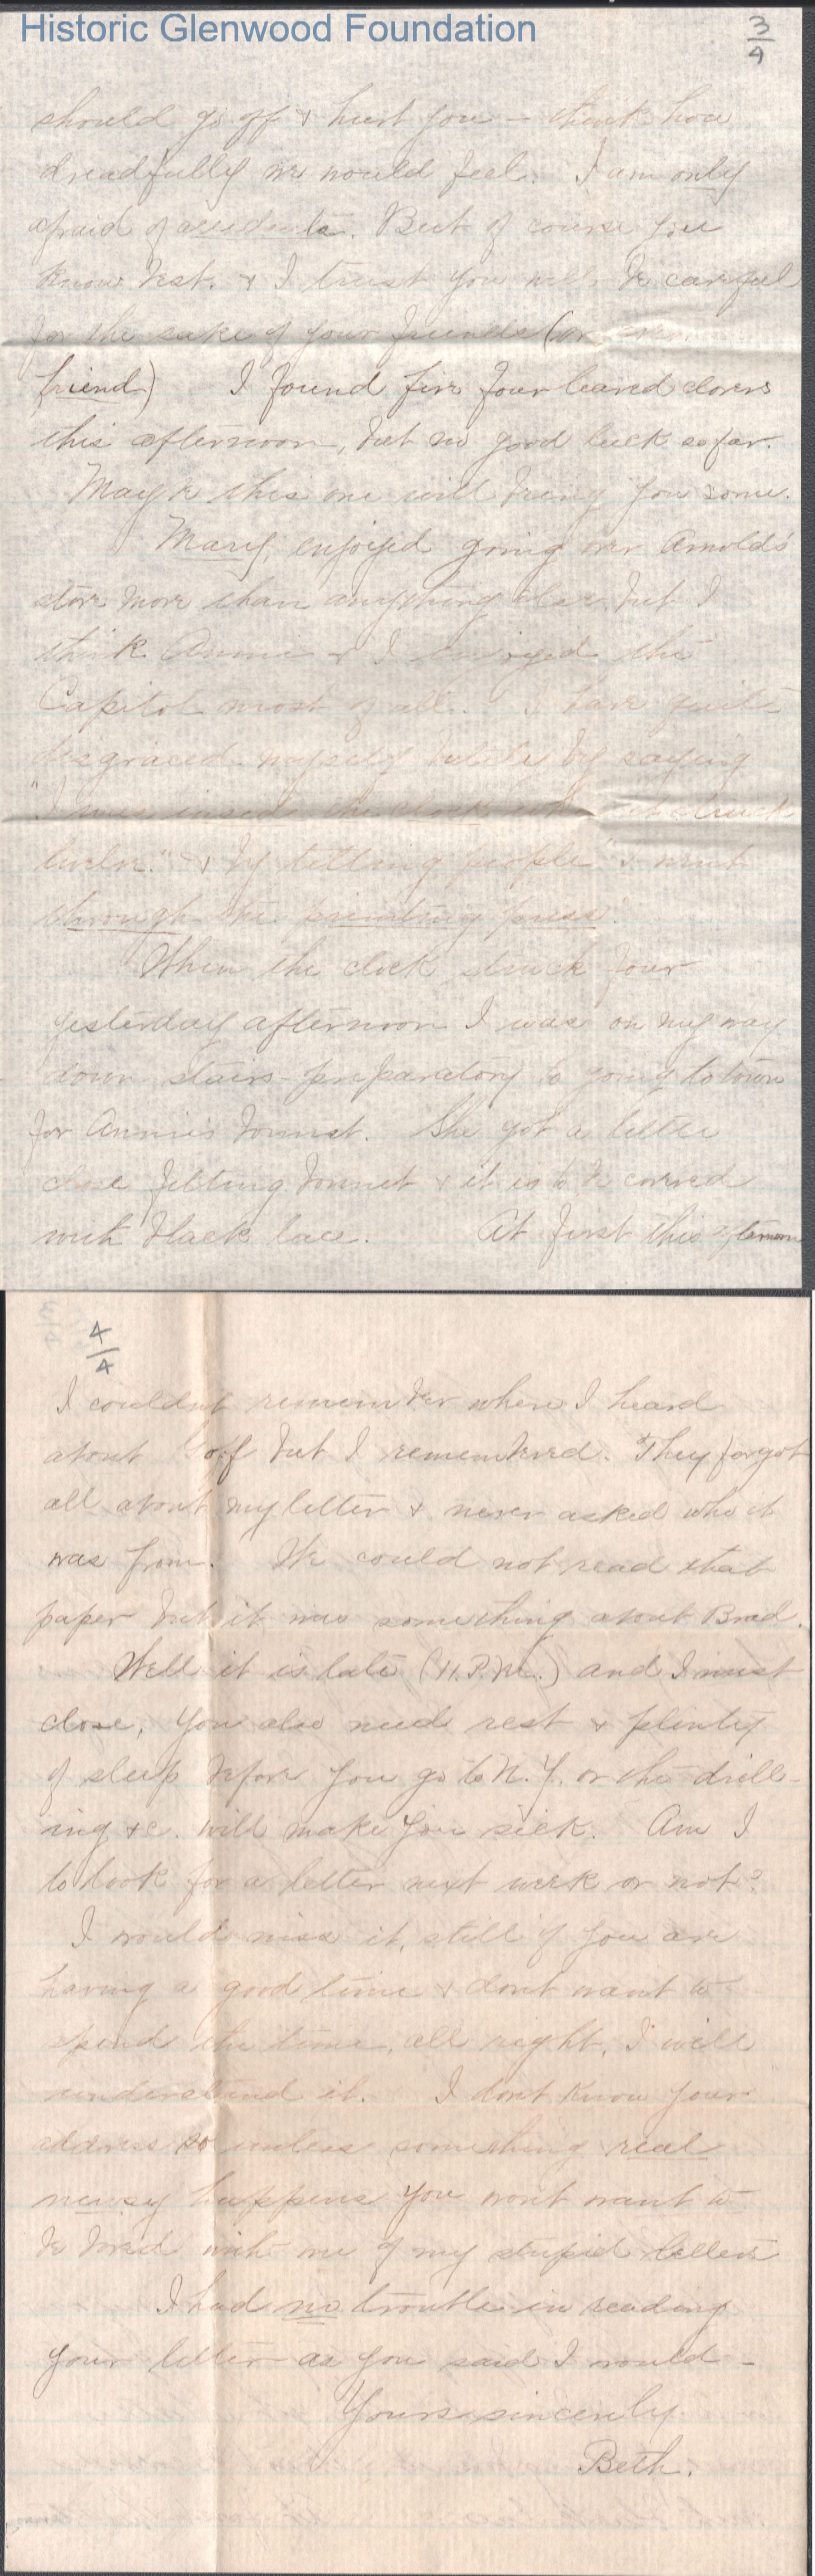 Historic Glenwood Foundation
3/4
should go off & hurt you – think how
dreadfully we would feel. I am only
afraid of accidents. But of course you
know best. & I trust you will be careful
for the sake of your friends (or
friend) I found five four leaved clovers
this afternoon, but no good luck so far.
Maybe this one will bring you some.
Mary, enjoyed going over Arnold's
store more than anything else but I
think Annie & I enjoyed the
Capitol most of all. I have quite
disgraced myself lately by saying
"I was inside the clock when it struck
twelve." & by telling people "I went
through the printing press."
When the clock struck four
yesterday afternoon I was on my way
down stairs – preparatory to going to town
for Annie's bonnet. She got a little
close fitting bonnet & it is to be covered
with black lace. At first this afternoon
4/4
I couldn't remember where I heard
about but I remembered. They forgot
all about my letter & never asked who it
was from. We could not read that
paper but it was something about Brad.
Well it is late (11. P.M.) and I must
close, you also need rest & plenty
of sleep before you go to N.Y. or the drill-
ing &c. will make you sick. Am I
to look for a letter next week or not?
I would miss it, still if you are
having a good time & dont want to
spend the time, all right, I will
understand it. I dont know your
address so unless something real
newsy happens you wont want to
be bored with one of my stupid letters
I had no trouble in reading
your letter as you said I would –
Yours sincerely
Beth.